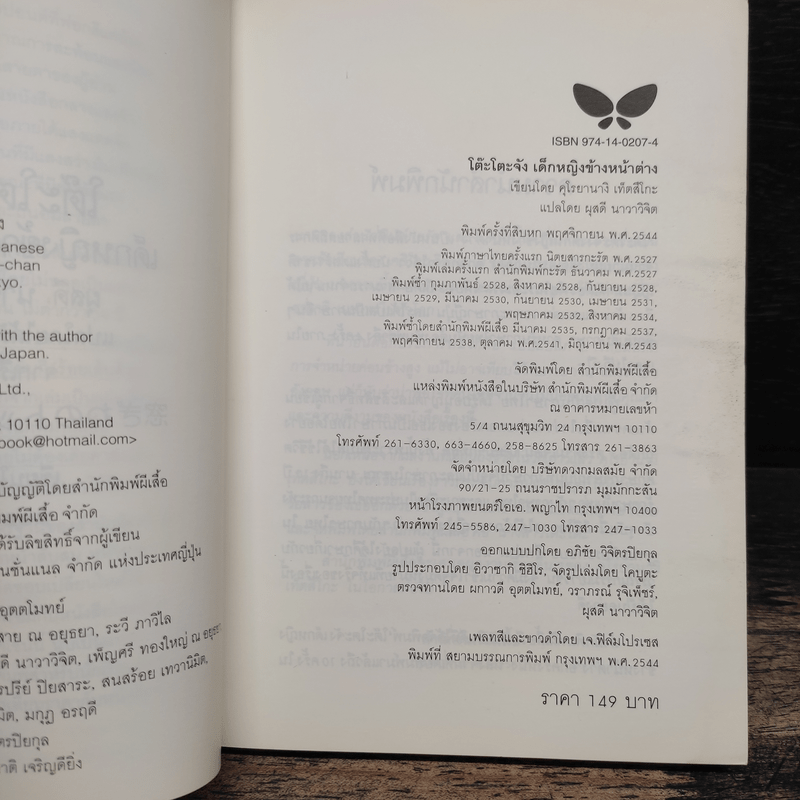 anese
-chan
yo.
with the author
Japan.
Ltd.,
10110 Thailand
book@hotmail.com>
บัญญัติโดยสำนักพิมพ์ผีเสื้อ
มพ์ผีเสื้อ จำกัด
ด้รับลิขสิทธิ์จากผู้เขียน
นชั่นแนล จำกัด แห่งประเทศญี่ปุ่น
อุตตโมทย์
สาย ณ อยุธยา, ระวี ภาวิไล
ดี นาวาวิจิต, เพ็ญศรี ทองใหญ่ ณ อยุธยา
รปรีย์ ปิยสาระ, สนสร้อย เทวานิมิต,
มิต, มกุฏ อรฤดี
ตรปิยกุล
าติ เจริญดียิ่ง
ISBN 974-14-0207-4
โต๊ะโตะจัง เด็กหญิงข้างหน้าต่าง
เขียนโดย คุโรยานางิ เท็ตสึโกะ
แปลโดย ผุสดี นาวาวิจิต
พิมพ์ครั้งที่สิบหก พฤศจิกายน พ.ศ.2544
พิมพ์ภาษาไทยครั้งแรก นิตยสารกะรัต พ.ศ.2527
พิมพ์เล่มครั้งแรก สำนักพิมพ์กะรัต ธันวาคม พ.ศ.2527
พิมพ์ซ้ำ กุมภาพันธ์ 2528, สิงหาคม 2528, กันยายน 2528,
เมษายน 2529, มีนาคม 2530, กันยายน 2530, เมษายน 2531,
พฤษภาคม 2532, สิงหาคม 2534,
พิมพ์ซ้ำโดยสำนักพิมพ์ผีเสื้อ มีนาคม 2535, กรกฎาคม 2537,
พฤศจิกายน 2538, ตุลาคม พ.ศ.2541, มิถุนายน พ.ศ.2543
จัดพิมพ์โดย สำนักพิมพ์ผีเสื้อ
แหล่งพิมพ์หนังสือในบริษัท สำนักพิมพ์ผีเสื้อ จำกัด
ณ อาคารหมายเลขห้า
5/4 ถนนสุขุมวิท 24 กรุงเทพฯ 10110
โทรศัพท์ 261-6330, 663-4660, 258-8625 โทรสาร 261-3863
จัดจำหน่ายโดย บริษัทดวงกมลสมัย จำกัด
90/21-25 ถนนราชปรารภ มุมมักกะสัน
หน้าโรงภาพยนตร์โอเอ. พญาไท กรุงเทพฯ 10400
โทรศัพท์ 245-5586, 247-1030 โทรสาร 247-1033
ออกแบบปกโดย อภิชัย วิจิตรปิยกุล
รูปประกอบโดย อิวาซากิ ชิฮิโร, จัดรูปเล่มโดย โคบูตะ
ตรวจทานโดย ผกาวดี อุตตโมทย์, วราภรณ์ รุจิเพ็ชร์,
ผุสดี นาวาวิจิต
เพลทสีและขาวดำโดย เจ.ฟิล์มโปรเซส
พิมพ์ที่ สยามบรรณการพิมพ์ กรุงเทพฯ พ.ศ.2544
ราคา 149 บาท